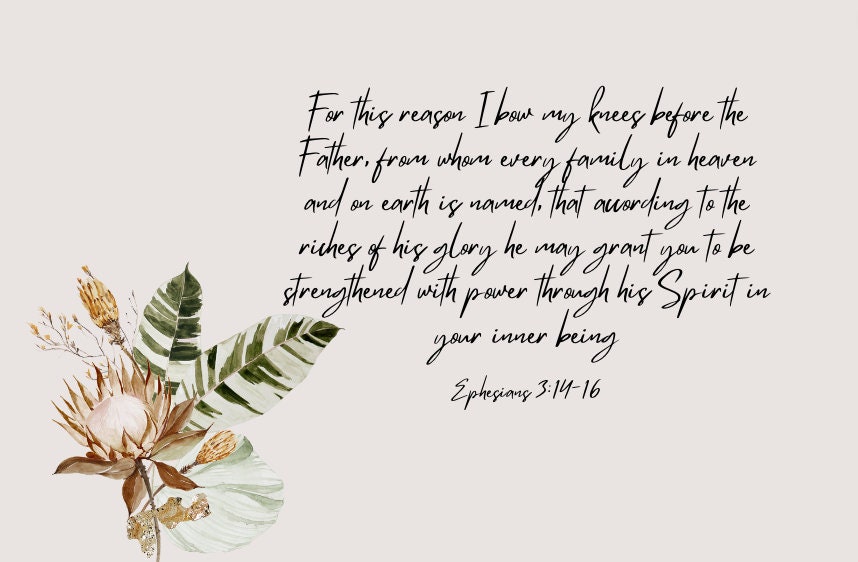 For this reason I bow my knees before the
Father, from whom every family in heaven
and on earth is named, that according to the
riches of his glory he may grant you to be
strengthened with power through his Spirit in
your inner being
Ephesians 3:14-16